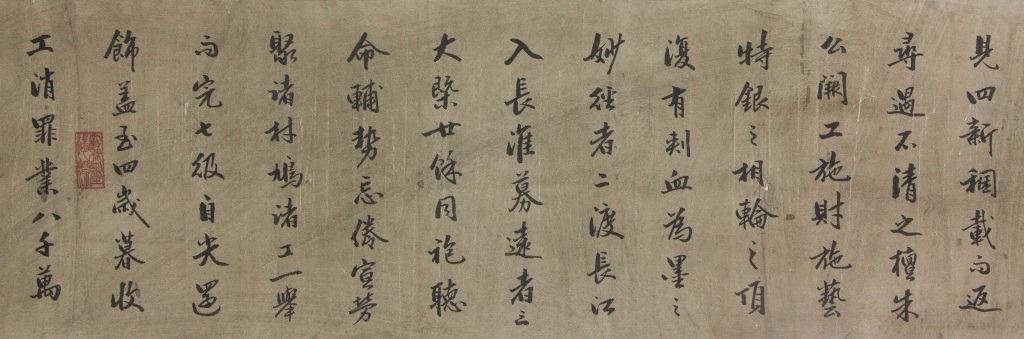 見四新稠載而返
尋過不清之檀朱
公闕工施財施藝
特銀之相輪之頂
復有刺血為墨之
妙經者二渡長江
入長淮募遠者三
大槩廿餘同袍聽
命輔勢忘倦宣勞
聚諸材鳩諸工一舉
而完七級自尖還
飾盖至四歲暮收
工消罪業八千萬